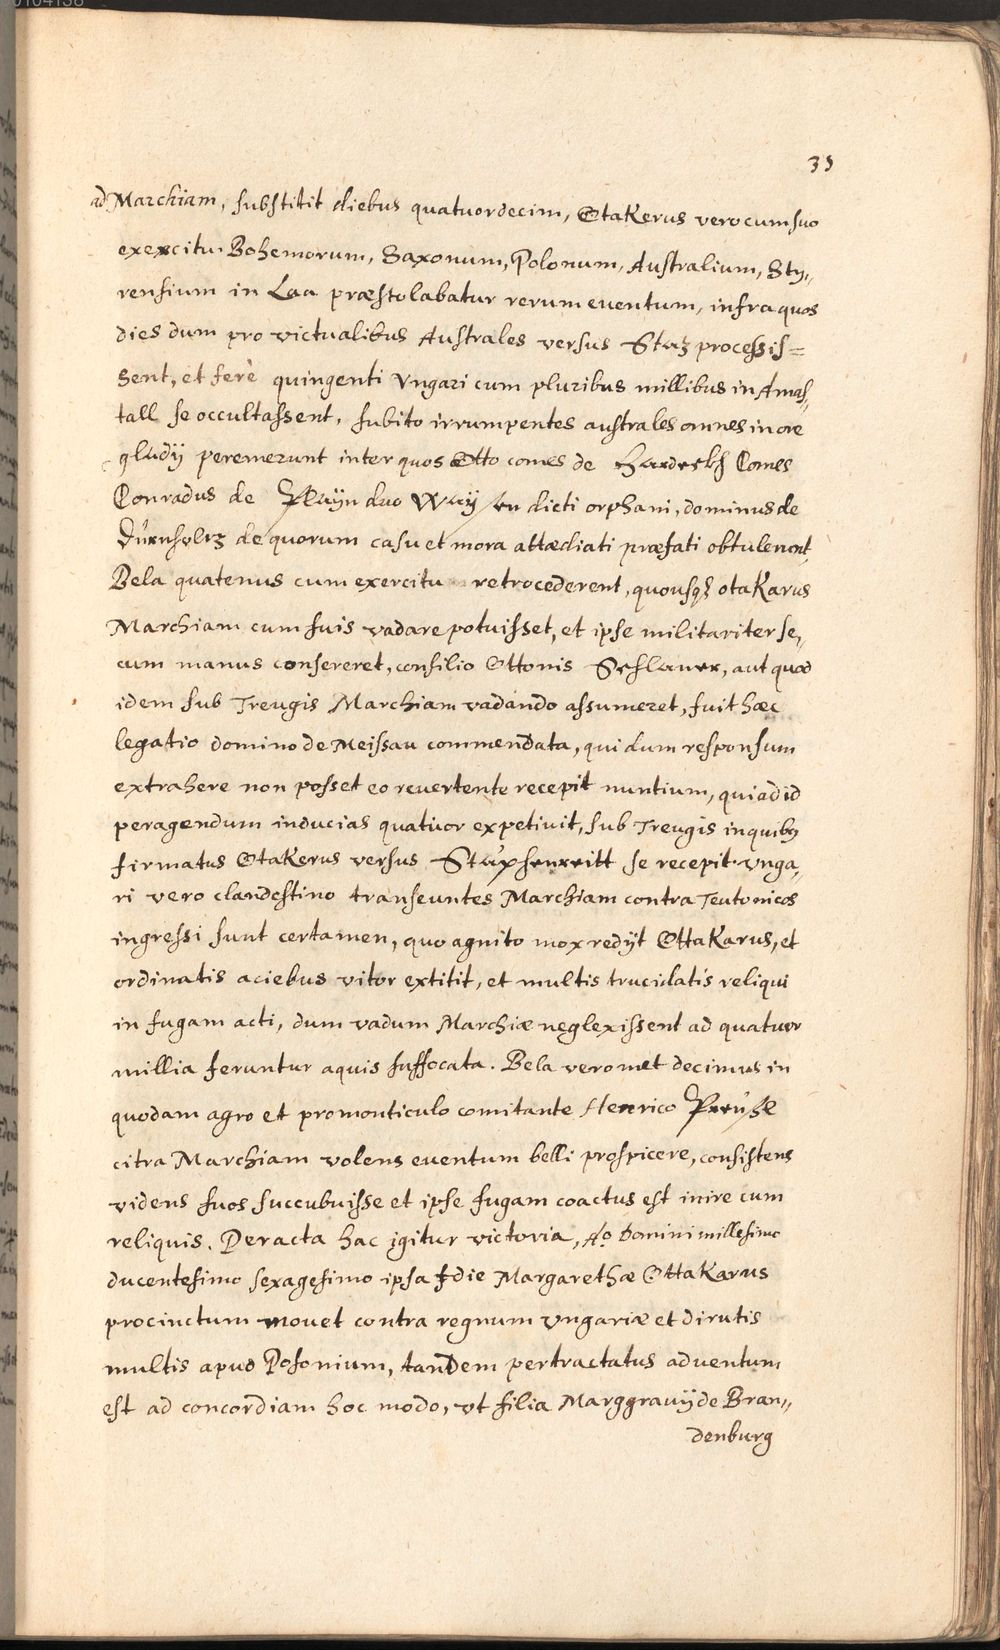 35
ad Marchiam, substitit diebus quatuordecim, Otakerus vero cum suo
exercitu Bohemorum, Saxonum, Polonum, Australium, Sty„
rensium in Laa præstolabatur rerum eventum, infra quos
dies dum pro victualibus Australes versus Staz processis=
sent, et ferè quingenti Vngari cum pluribus millibus in Amas„
tall se occultassent, subito irrumpentes australes omnes in ore
gladij peremerunt inter quos Otto comes de Hardeckh Comes
Conradus de Playn duo Waysen dicti orphani, dominus de
Dürnholtz de quorum casu et mora attædiati præfati obtulerunt
Bela quatenus cum exercitu retrocederent, quousq3 otakarus
Marchiam cum suis vadare potuisset, et ipse militariter se„
cum manus consereret, consilio Ottonis Seslauer, aut quod
idem sub Treugis Marchiam vadando assumeret, fuit hæc
legatio domino de Meissau commendata, qui dum responsum
extrahere non posset eo revertente recepit nuntium, qui ad id
peragendum inducias quatuor expetiuit, sub Treugis in quib3
firmatus Otakerus versus Stäxsenreitt se recepit. Vnga„
ri vero clandestino transeuntes Marchiam contra Teutonicos
ingressi sunt certamen, quo agnito mox redijt Ottakarus, et
ordinatis aciebus vitor extitit, et multis trucidatis reliqui
in fugam acti, dum vadum Marchiæ neglexissent ad quatuor
millia feruntur aquis suffocata. Bela vero met decimus in
quodam agro et promonticulo comitante Henrico Preüsse
citra Marchiam volens euentum belli prospicere, consistens
videns suos succubuisse et ipse fugam coactus est inire cum
reliquis. Peracta hac igitur victoria, Ao Domini millesimo
ducentesimo sexagesimo ipsa die Margarethæ Ottakarus
procinctum mouet contra regnum Vngariæ et dirutis
multis apud Posonium, tandem pertractatus adventum
est ad concordiam hoc modo, vt filia Marggrauij de Bran„
denburg